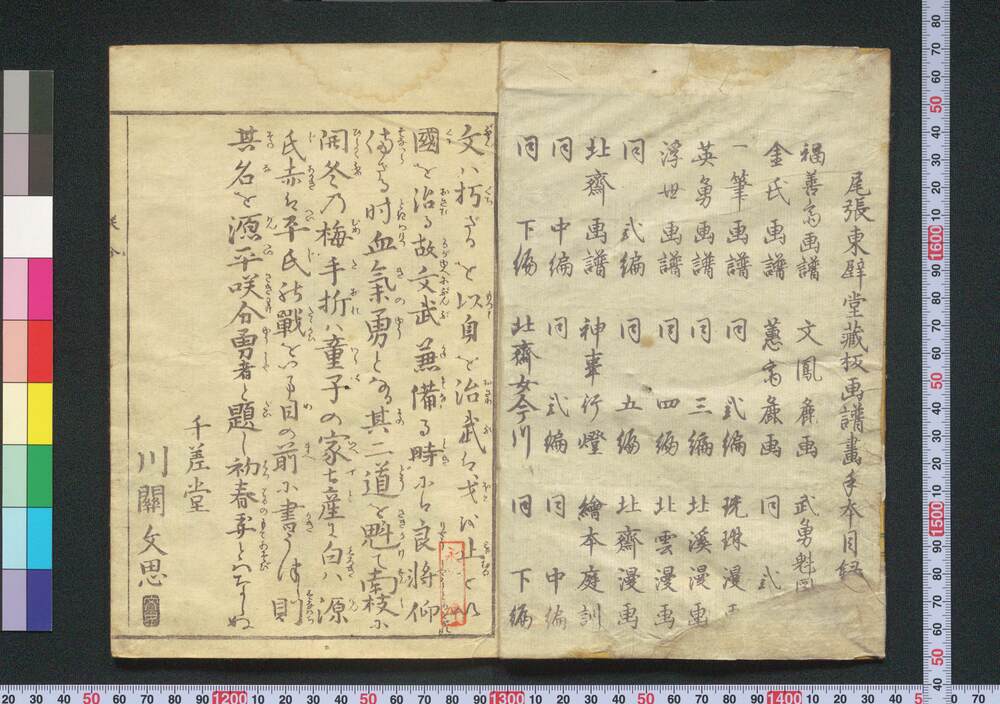 尾張東壁堂藏板画譜畫手本目録
福善斎画譜 文鳳麁画 武勇魁図
金氏画譜 蕙斎麁画 同 弐
一筆画譜 同 弐編 琺珠漫画
英勇画譜 同 三編 北溪漫画
浮世画譜 同 四編 北雲漫画
同 弐編 同 五編 北齋漫画
北齋画譜 神事行燈 繪本庭訓
同 中編 同 弐編 同 中編
同 下編 北齋女今川 同 下編
文ハ朽ざるを以身を治武は戈を止を以
國を治る故文武兼備る時にハ良将仰
侍ざる時血氣勇となる其二道を魁し南枝に
開冬乃梅手折ハ童子の家土産に白ハ源
氏赤は平氏の戰をいま目の前に書うけ則
其名を源平咲分勇者と題し初春要とハなしぬ
千差堂
川關文思